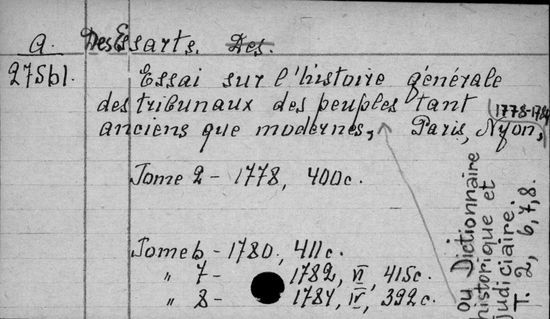 A. Des Essarts, Des.
2756l. Essai sur l'histoire générale
des tribunaux des peuples tant
anciens que modernes, Paris, Nyon,
1778-1784
Tome 2 - 1778, 400c.
Tome 6 - 1780, 411c.
" 7 - 1782, VI, 415c.
" 8 - 1784, IV, 392c.
ou Dictionnaire
historique et
judiciaire.
T. 2, 6, 7, 8.